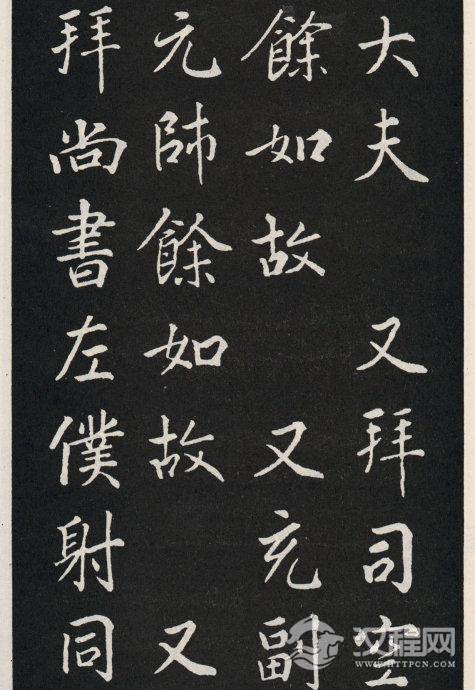 大夫 又拜司空
餘如故 又充副
元帥餘如故 又
拜尚書左僕射同
汉程网
HTTPCN.COM